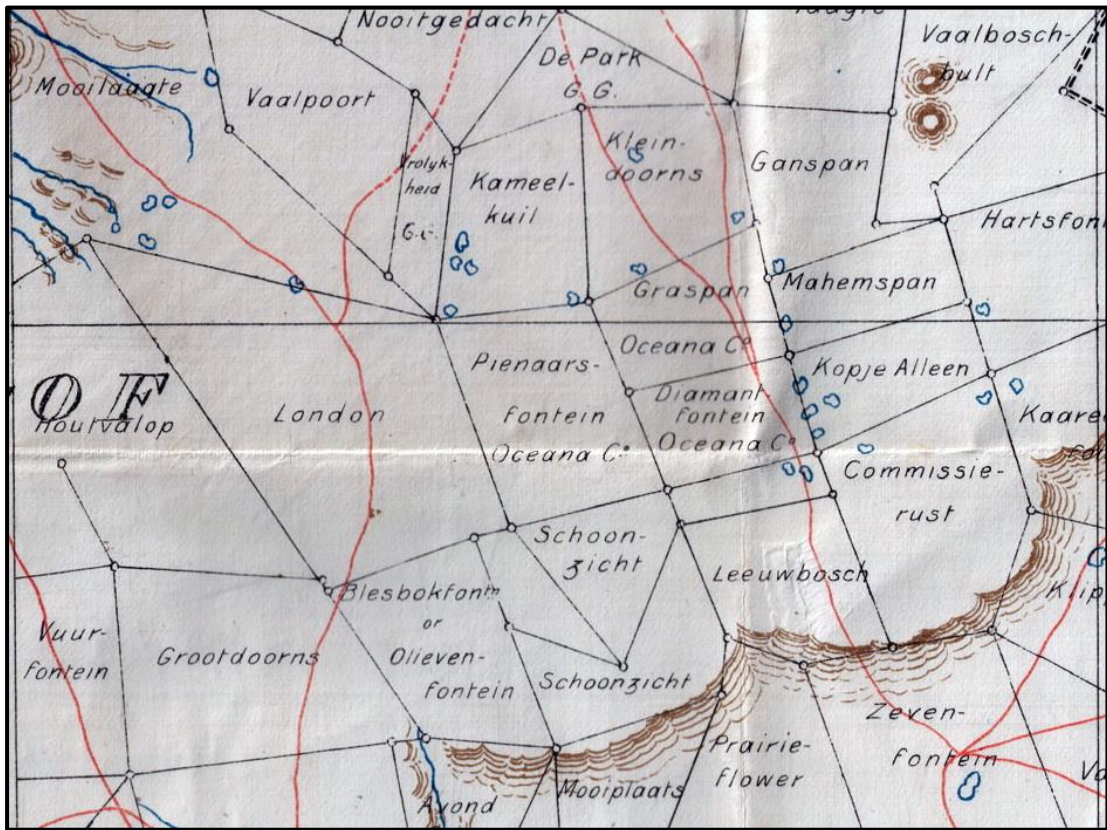 Nooitgedacht
De Park
G. G.
Vaalbosch-
bult
Mooilaagte
Vaalpoort
Vrolyk-
heid
Kameel-
kuil
Klein-
doorns
Ganspan
Hartsfon
Graspan
Mahemspan
Oceana Co.
Pienaars-
fontein
Oceana Co.
Diamant
fontein
Oceana Co.
Kopje Alleen
OF
Houtvalop
London
Kaaree
Commissie-
rust
Schoon-
zicht
Leeuwbosch
Klip
Blesbokfontn
or
Olieven-
fontein
Vuur-
fontein
Grootdoorns
Schoonzicht
Zeven-
fontein
Prairie-
flower
Mooiplaats
Avond
Va